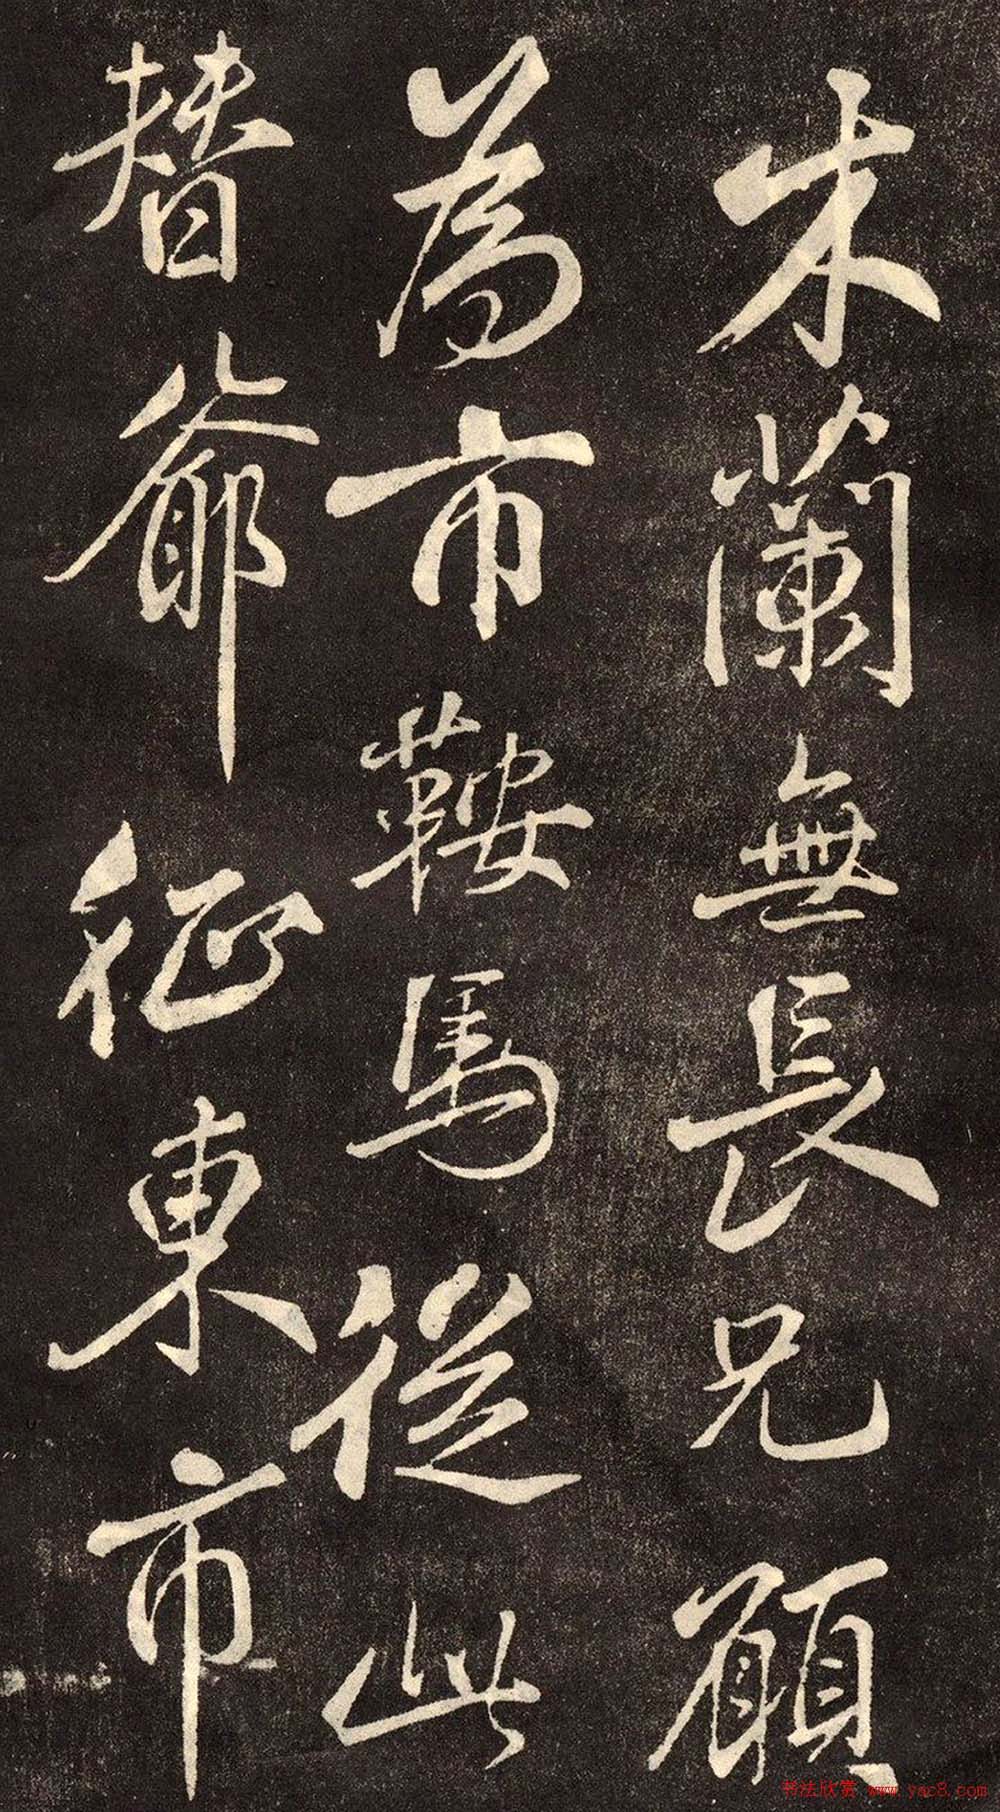 木蘭無長兄願
為市鞍馬從此
替爺征東市
书法欣赏 www.yac8.com